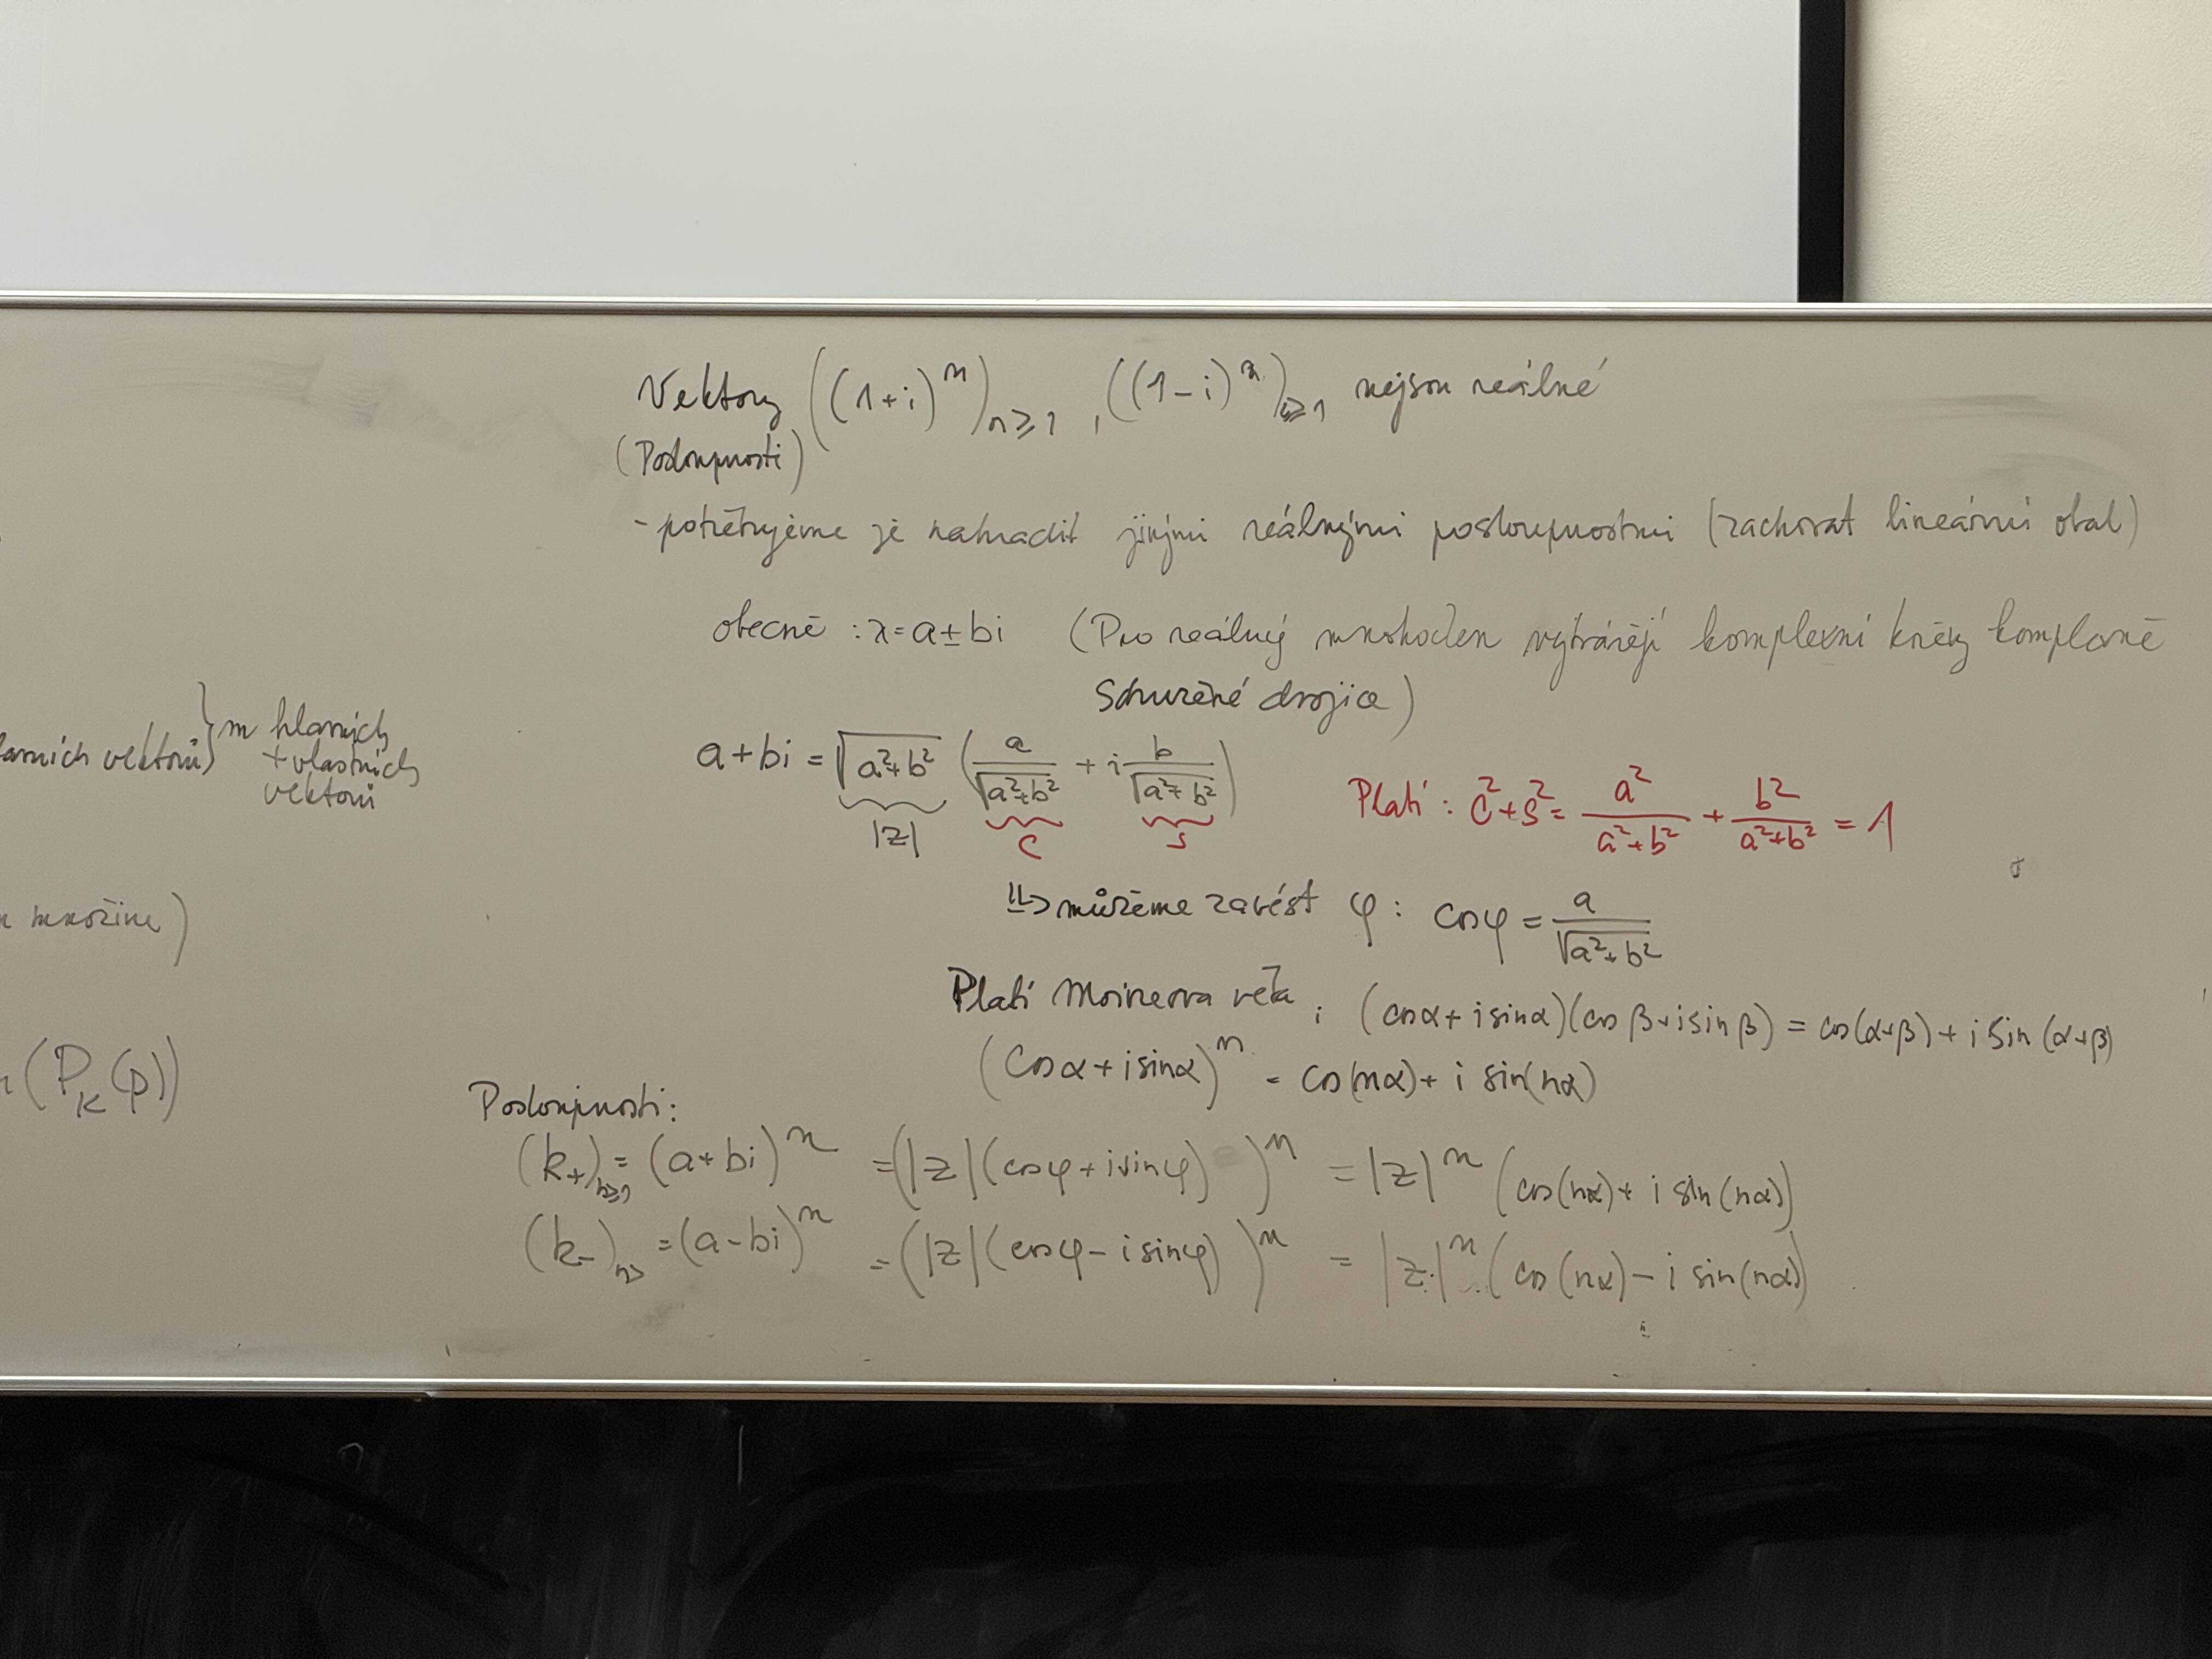 Vektory ((1+i)^n)_{n≥1} , ((1-i)^n)_{i≥1} nejsou reálné
(Posloupnosti)
- potřebujeme je nahradit jinými reálnými posloupnostmi (zachovat lineární obal)
obecně : λ = a ± bi (Pro reálný mnohočlen vytvářejí komplexní kořeny komplexně
sdružené dvojice)
a+bi = √(a²+b²) ( a/√(a²+b²) + i b/√(a²+b²) )
|z| c s
Platí : c² + s² = a²/(a²+b²) + b²/(a²+b²) = 1
⇒ můžeme zavést φ : cos φ = a/√(a²+b²)
Platí Moivrova věta : (cos α + i sin α)(cos β + i sin β) = cos(α+β) + i sin(α+β)
(cos α + i sin α)^n = cos(nα) + i sin(nα)
Posloupnosti:
(k₊)_{n≥1} = (a+bi)^n = (|z|(cos φ + i sin φ))^n = |z|^n (cos(nα) + i sin(nα))
(k₋)_{n≥} = (a-bi)^n = (|z|(cos φ - i sin φ))^n = |z|^n (cos(nα) - i sin(nα))
vektorů } m hlavních
+ vlastních
vektorů
množině)
(P_K(p))